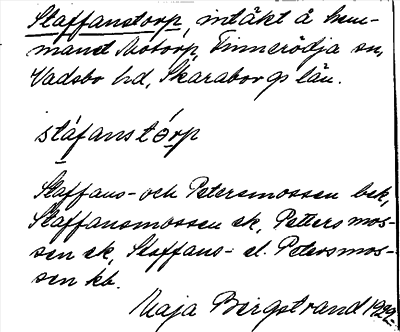 Staffanstorp, intäkt å hem-
manet Motorp, Finnerödja sn,
Vadsbo hd, Skaraborgs län.
stáfanstórp
Staffans- och Petersmossen bek,
Staffansmossen ek, Petters mos-
sen ek, Staffans- el. Petersmos-
sen kb.
Maja Bergstrand 1922